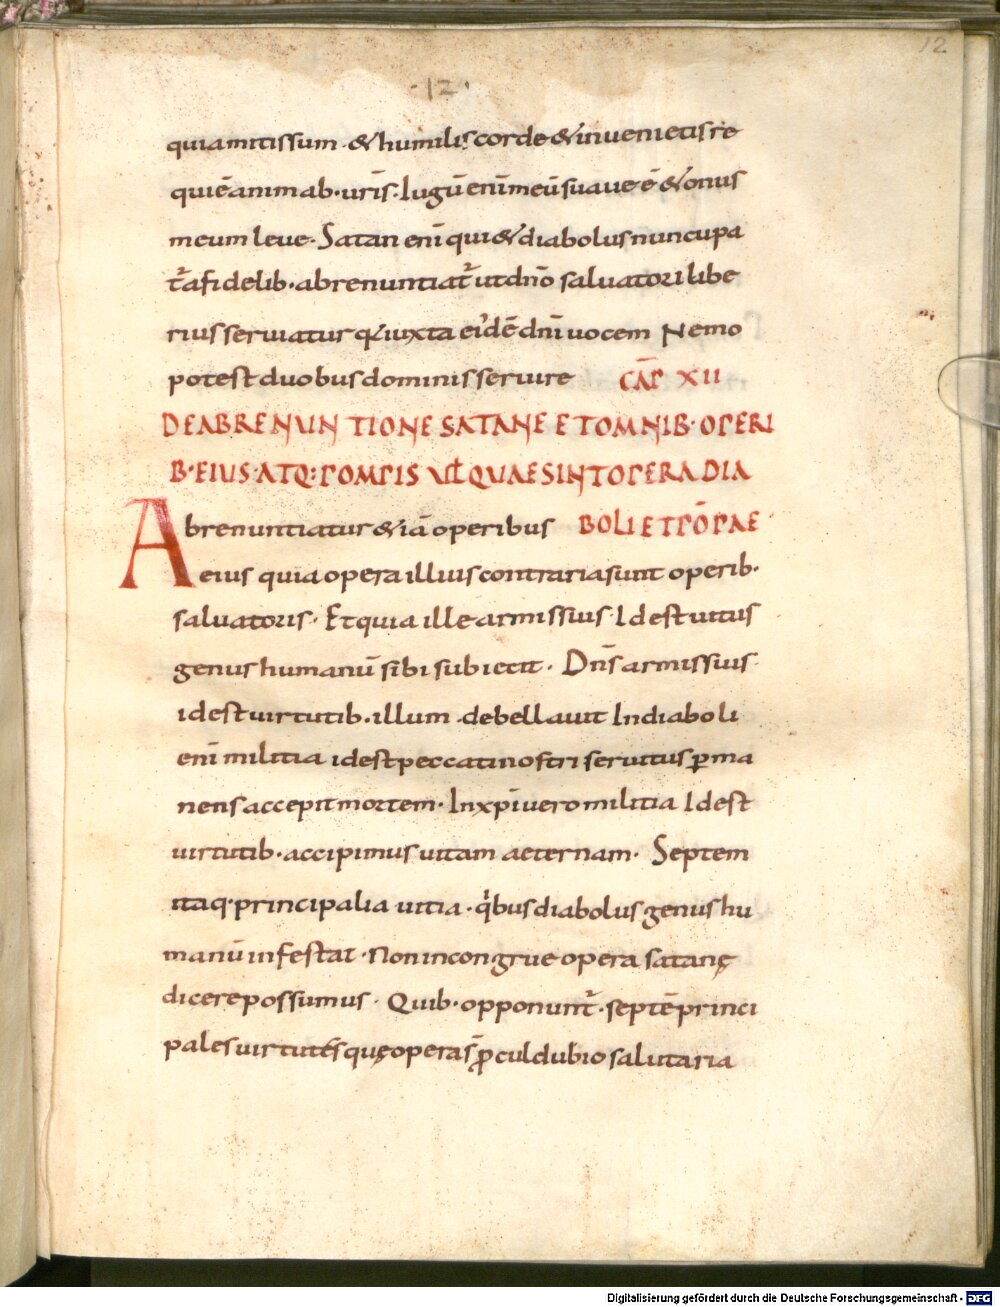 12
·12·
quia mitissum & humilis corde & invenietis re
quiē animab· vr̄is· Iugū enī meū suave ē & onus
meum leve· Satan enī qui & diabolus nuncupa
t̄ a fidelib· abrenuntiat̄ ut dn̄o salvatori libe
rius serviatur iuxta dn̄i vocem Nemo
potest duobus dominis servire CAP̄ XII
DE ABRENUNTIONE SATANE ET OMNIB· OPERI
B· EIUS· ATQ: POMPIS VEL QUAE SINT OPERA DIA
Abrenuntiatur & iā operibus BOLI ET PŌPAE
eius quia opera illius contraria sunt operib·
salvatoris· Et quia ille armis suis· Id est vitiis
genus humanū sibi subiecit· Dn̄s armis suis·
id est virtutib· illum debellavit In diaboli
enī militia id est peccati nostri servitus ꝑma
nens accepit mortem· In xp̄i vero militia Id est
virtutib· accipimus vitam aeternam· Septem
itaq· principalia vitia· qͥbus diabolus genus hu
manū infestat· Non incongrue opera satanę
dicere possumus· Quib· opponunt̄· septē princi
pales virtutes quę opera s̄ p̄cul dubio salutaria
Digitalisierung gefördert durch die Deutsche Forschungsgemeinschaft - DFG